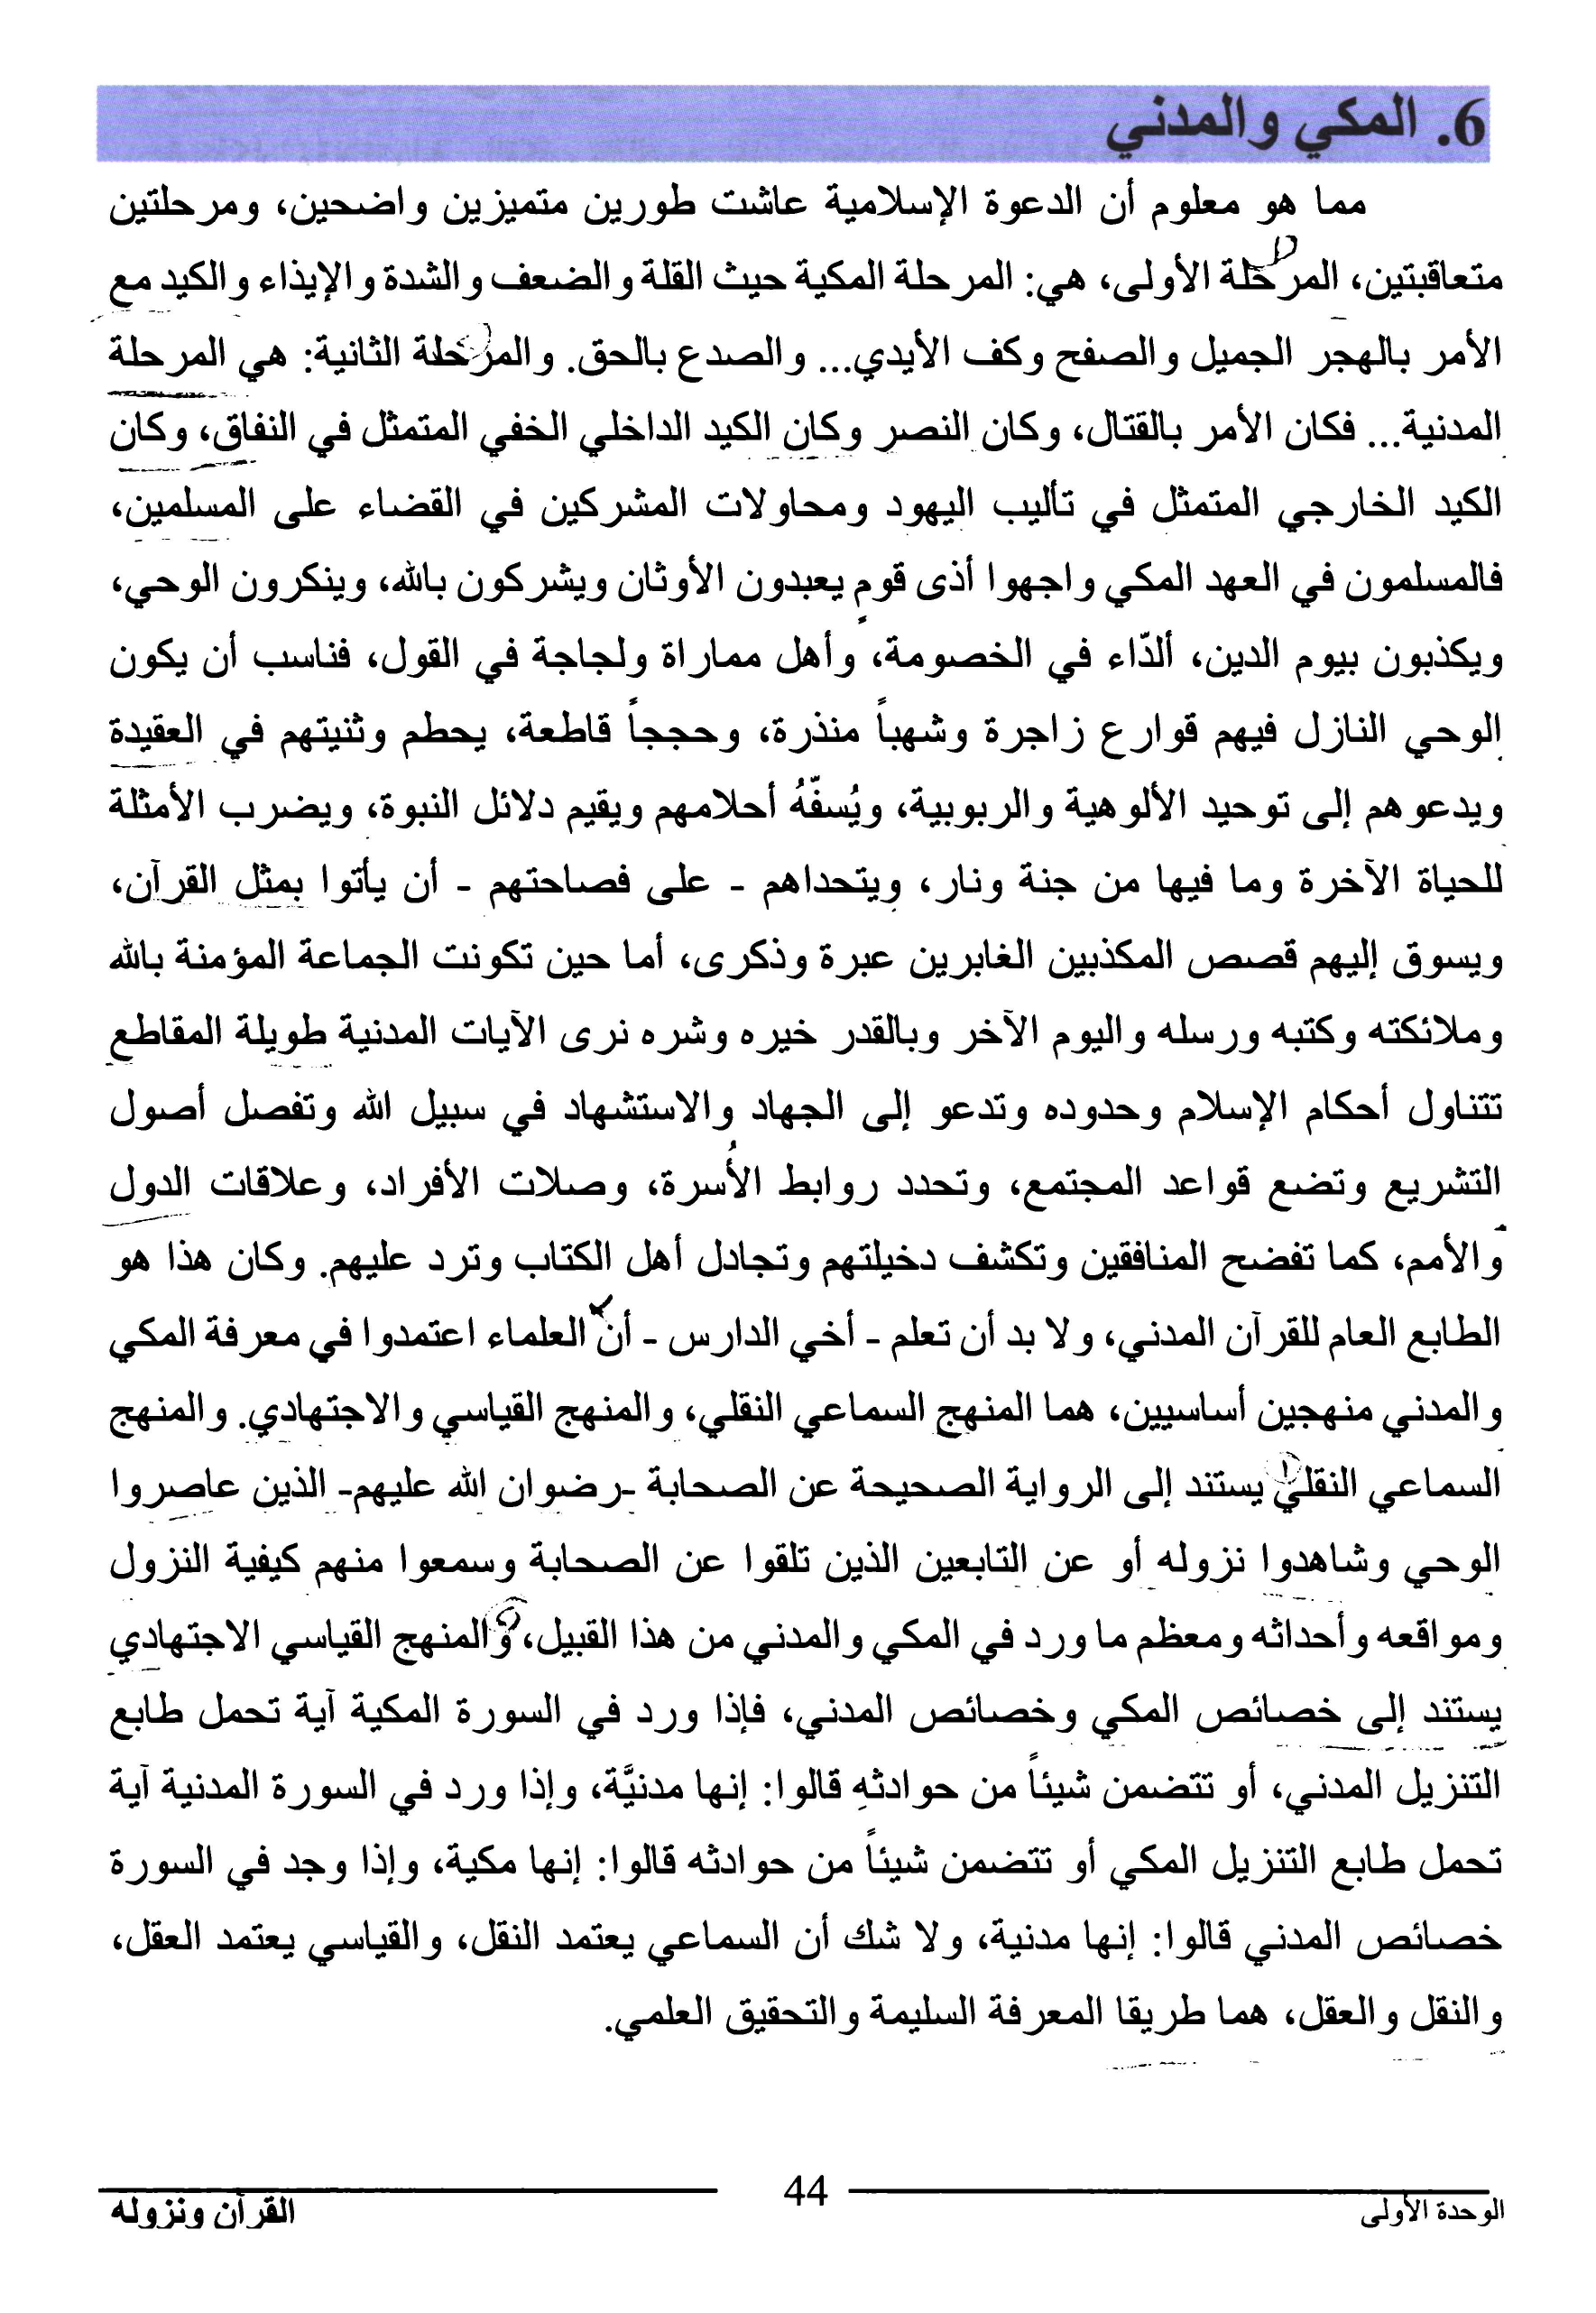 6. المكي والمدني
مما هو معلوم أن الدعوة الإسلامية عاشت طورين متميزين واضحين، ومرحلتين
متعاقبتين، المرحلة الأولى، هي: المرحلة المكية حيث القلة والضعف والشدة والإيذاء والكيد مع
الأمر بالهجر الجميل والصفح وكف الأيدي... والصدع بالحق. والمرحلة الثانية: هي المرحلة
المدنية... فكان الأمر بالقتال، وكان النصر وكان الكيد الداخلي الخفي المتمثل في النفاق، وكان
الكيد الخارجي المتمثل في تأليب اليهود ومحاولات المشركين في القضاء على المسلمين،
فالمسلمون في العهد المكي واجهوا أذى قوم يعبدون الأوثان ويشركون بالله، وينكرون الوحي،
ويكذبون بيوم الدين، ألدّاء في الخصومة، وأهل مماراة ولجاجة في القول، فناسب أن يكون
الوحي النازل فيهم قوارع زاجرة وشهباً منذرة، وحججاً قاطعة، يحطم وثنيتهم في العقيدة
ويدعوهم إلى توحيد الألوهية والربوبية، ويُسفّهُ أحلامهم ويقيم دلائل النبوة، ويضرب الأمثلة
للحياة الآخرة وما فيها من جنة ونار، ويتحداهم - على فصاحتهم - أن يأتوا بمثل القرآن،
ويسوق إليهم قصص المكذبين الغابرين عبرة وذكرى، أما حين تكونت الجماعة المؤمنة بالله
وملائكته وكتبه ورسله واليوم الآخر وبالقدر خيره وشره نرى الآيات المدنية طويلة المقاطع
تتناول أحكام الإسلام وحدوده وتدعو إلى الجهاد والاستشهاد في سبيل الله وتفصل أصول
التشريع وتضع قواعد المجتمع، وتحدد روابط الأُسرة، وصلات الأفراد، وعلاقات الدول
والأمم، كما تفضح المنافقين وتكشف دخيلتهم وتجادل أهل الكتاب وترد عليهم. وكان هذا هو
الطابع العام للقرآن المدني، ولا بد أن تعلم - أخي الدارس - أن العلماء اعتمدوا في معرفة المكي
والمدني منهجين أساسيين، هما المنهج السماعي النقلي، والمنهج القياسي والاجتهادي. والمنهج
السماعي النقلي يستند إلى الرواية الصحيحة عن الصحابة -رضوان الله عليهم- الذين عاصروا
الوحي وشاهدوا نزوله أو عن التابعين الذين تلقوا عن الصحابة وسمعوا منهم كيفية النزول
ومواقعه وأحداثه ومعظم ما ورد في المكي والمدني من هذا القبيل، والمنهج القياسي الاجتهادي
يستند إلى خصائص المكي وخصائص المدني، فإذا ورد في السورة المكية آية تحمل طابع
التنزيل المدني، أو تتضمن شيئاً من حوادثه قالوا: إنها مدنيَّة، وإذا ورد في السورة المدنية آية
تحمل طابع التنزيل المكي أو تتضمن شيئاً من حوادثه قالوا: إنها مكية، وإذا وجد في السورة
خصائص المدني قالوا: إنها مدنية، ولا شك أن السماعي يعتمد النقل، والقياسي يعتمد العقل،
والنقل والعقل، هما طريقا المعرفة السليمة والتحقيق العلمي.
الوحدة الأولى
44
القرآن ونزوله